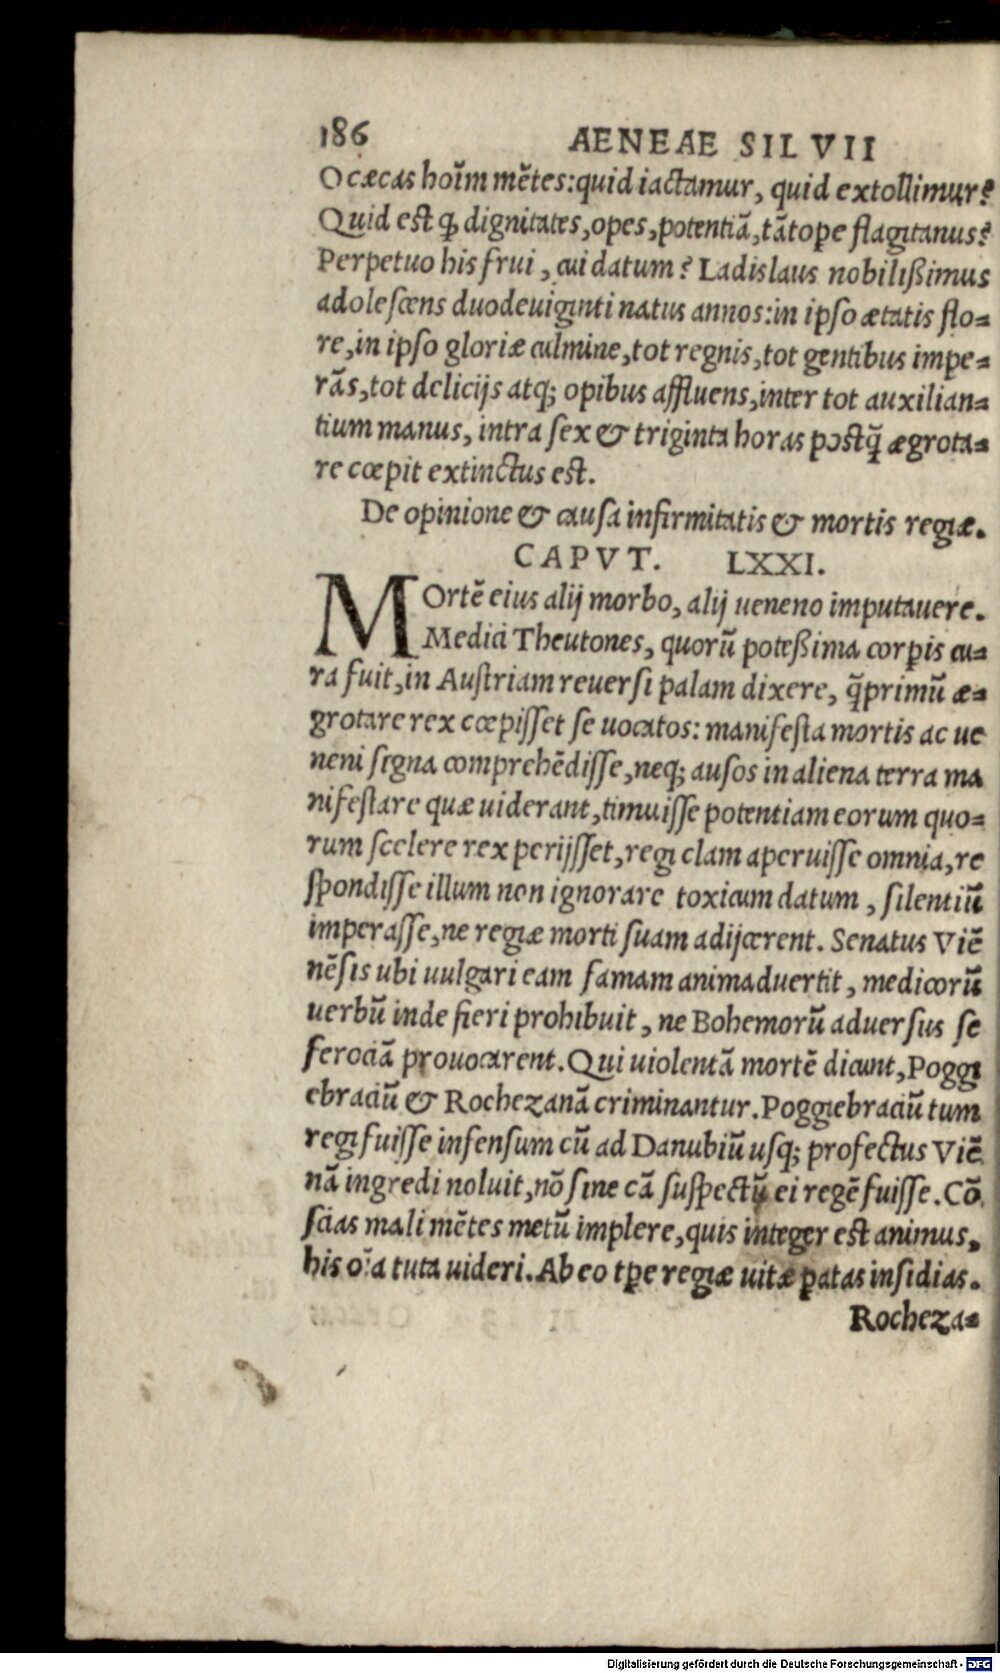 186 AENEAE SILVII
O cæcas hoīm mētes: quid iactamur, quid extollimur?
Quid est ꝙ dignitates, opes, potentiā, tātope flagitanus?
Perpetuo his frui, cui datum? Ladislaus nobilißimus
adolescens duodeuiginti natus annos: in ipso ætatis flo=
re, in ipso gloriæ culmine, tot regnis, tot gentibus impe=
rās, tot delicijs atq; opibus affluens, inter tot auxilian=
tium manus, intra sex & triginta horas postq̄ ægrota=
re cœpit extinctus est.
De opinione & causa infirmitatis & mortis regiæ.
CAPVT. LXXI.
MOrtē eius alij morbo, alij ueneno imputauere.
Medici Theutones, quorū poteßima corꝑis cu=
ra fuit, in Austriam reuersi palam dixere, q̄primū æ=
grotare rex cœpisset se uocatos: manifesta mortis ac ue
neni signa comprehēdisse, neq; ausos in aliena terra ma
nifestare quæ uiderant, timuisse potentiam eorum quo=
rum scelere rex perijsset, regi clam aperuisse omnia, re
spondisse illum non ignorare toxicum datum, silentiū
imperasse, ne regiæ morti suam adijcerent. Senatus Viē
nēsis ubi uulgari eam famam animaduertit, medicorū
uerbū inde fieri prohibuit, ne Bohemorū aduersus se
ferociā prouocarent. Qui uiolentā mortē dicunt, Poggi
ebraciū & Rochezanā criminantur. Poggiebraciū tum
regi fuisse infensum cū ad Danubiū usq; profectus Viē
nā ingredi noluit, nō sine cā suspectū ei regē fuisse. Cō
scias mali mētes metū implere, quis integer est animus,
his oīa tuta uideri. Ab eo tꝑe regiæ uitæ ꝑatas insidias.
Rocheza=
Digitalisierung gefördert durch die Deutsche Forschungsgemeinschaft - DFG